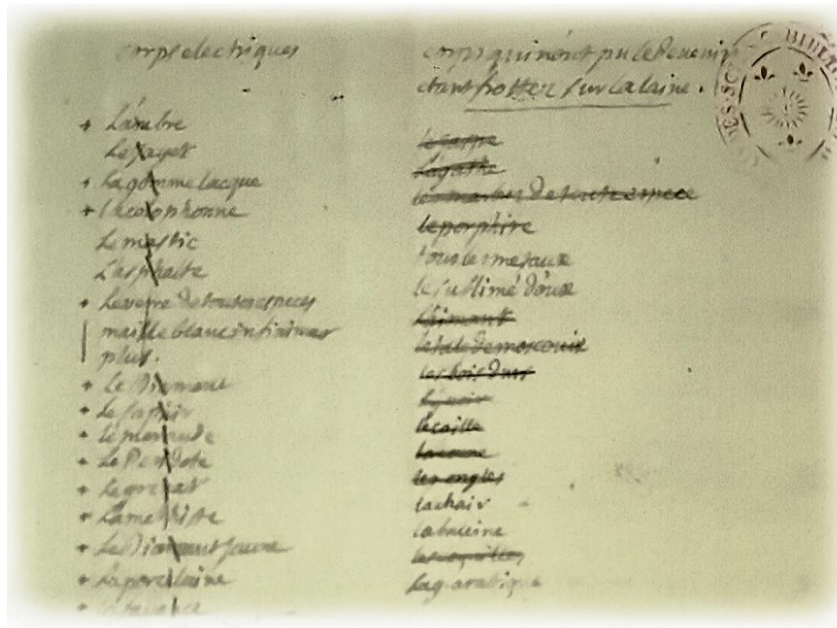 corps electriques
+ L'ambre
Le jayet
+ La gomme lacque
+ la colophonne
Le mastic
L'asphalte
+ Le verre de toutes especes
mais le blanc infiniment
plus.
+ Le Diamant
+ Le saphir
+ L'emeraude
+ Le Peridote
+ Le grenat
+ L'amethiste
+ Le Diamant jaune
+ La porcelaine
+ La fayance
corps qui n'ont pu le devenir
étant frottez sur la laine.
le jaspe
L'agathe
les marbres de toute espece
le porphire
tous les metaux
le sublimé doux
L'aimant
le talc de moscovie
les bois durs
L'ivoir
l'ecaille
la corne
les ongles
la chair
la baleine
les coquilles
la g. arabique